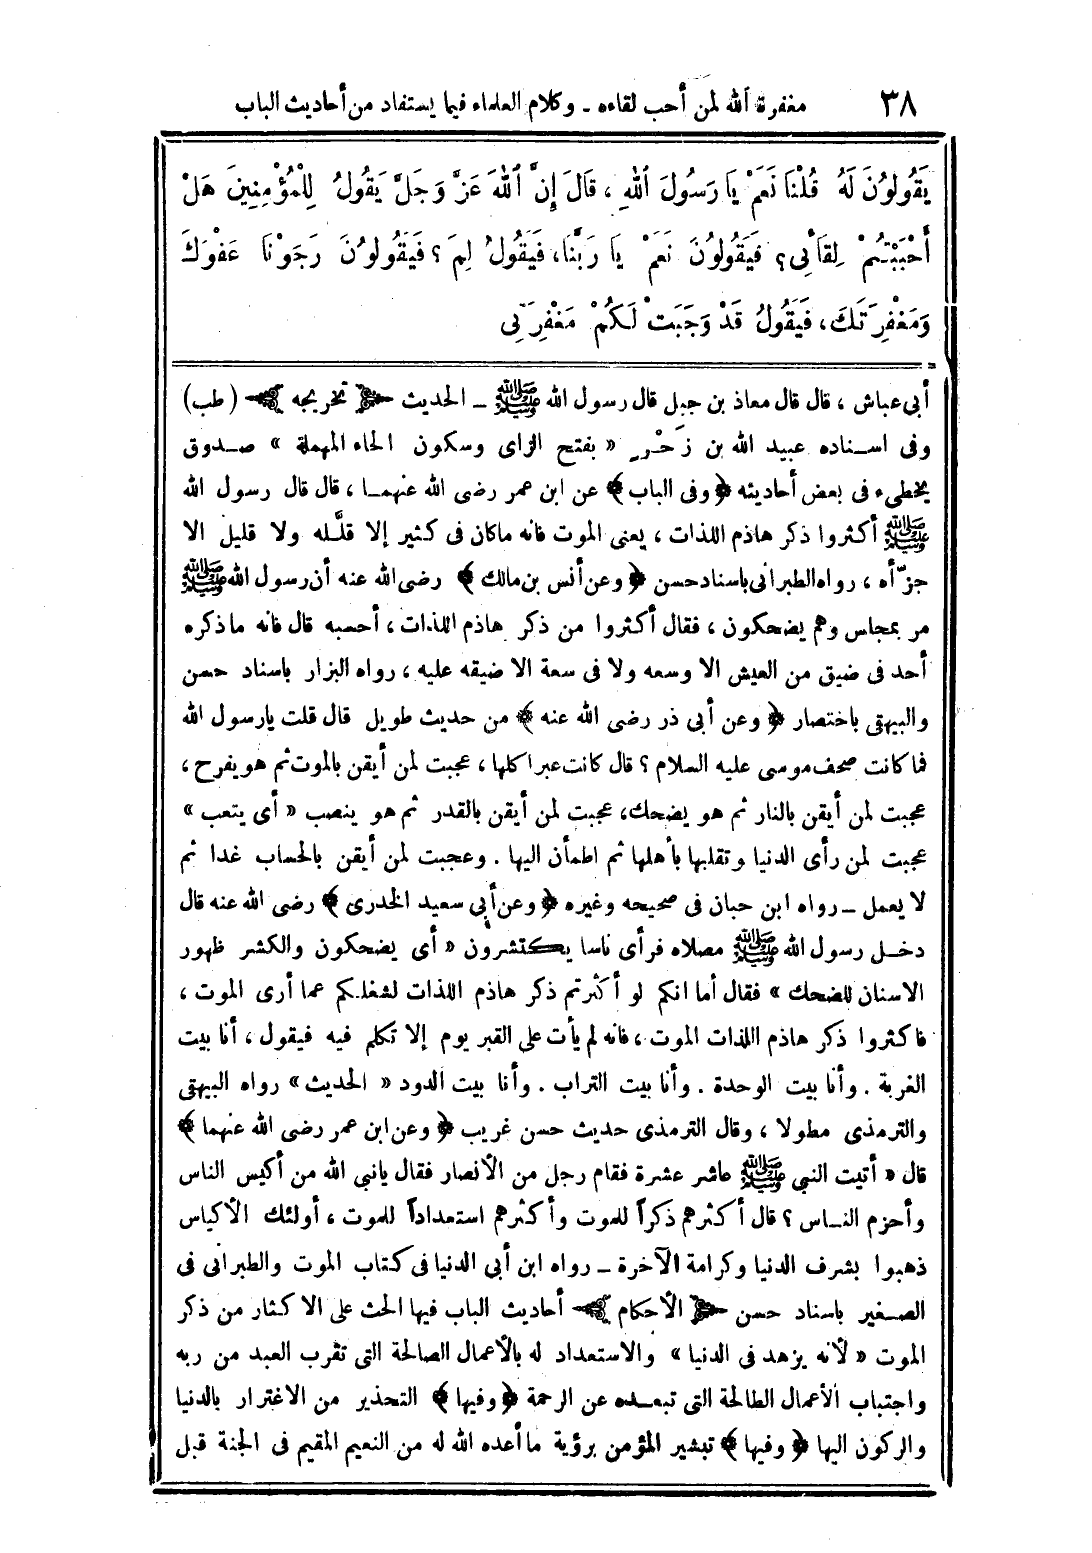 ٣٨ مغفرة الله لمن أحب لقاءه - وكلام العلماء فيما يستفاد من أحاديث الباب
يَقُولُونَ لَهُ قُلْنَا نَعَمْ يَا رَسُولَ اللهِ ، قَالَ إِنَّ اللهَ عَزَّ وَجَلَّ يَقُولُ لِلْمُؤْمِنِينَ هَلْ
أَحْبَبْتُمْ لِقَائِى ؟ فَيَقُولُونَ نَعَمْ يَا رَبَّنَا، فَيَقُولُ لِمَ ؟ فَيَقُولُونَ رَجَوْنَا عَفْوَكَ
وَمَغْفِرَتَكَ، فَيَقُولُ قَدْ وَجَبَتْ لَكُمْ مَغْفِرَتِى
أبى عياش ، قال قال معاذ بن جبل قال رسول الله ﷺ - الحديث ﴿ تخريجه ﴾ (طب)
وفى اسناده عبيد الله بن زَحْر « بفتح الزاى وسكون الحاء المهملة » صدوق
يخطىء فى بعض أحاديثه ﴿ وفى الباب ﴾ عن ابن عمر رضى الله عنهما ، قال قال رسول الله
ﷺ أكثروا ذكر هاذم اللذات ، يعنى الموت فانه ماكان فى كثير إلا قلَّله ولا قليل الا
جزّأه ، رواه الطبرانى باسناد حسن ﴿ وعن أنس بن مالك ﴾ رضى الله عنه أن رسول الله ﷺ
مر بمجلس وهم يضحكون ، فقال أكثروا من ذكر هاذم اللذات ، أحسبه قال فانه ماذكره
أحد فى ضيق من العيش الا وسعه ولا فى سعة الا ضيقه عليه ، رواه البزار باسناد حسن
والبيهقى باختصار ﴿ وعن أبى ذر رضى الله عنه ﴾ من حديث طويل قال قلت يارسول الله
فما كانت صحف موسى عليه السلام ؟ قال كانت عبرا كلها ، عجبت لمن أيقن بالموت ثم هو يفرح ،
عجبت لمن أيقن بالنار ثم هو يضحك، عجبت لمن أيقن بالقدر ثم هو ينصب « أى يتعب »
عجبت لمن رأى الدنيا وتقلبها بأهلها ثم اطمأن اليها . وعجبت لمن أيقن بالحساب غدا ثم
لا يعمل - رواه ابن حبان فى صحيحه وغيره ﴿ وعن أبى سعيد الخدرى ﴾ رضى الله عنه قال
دخل رسول الله ﷺ مصلاه فرأى ناسا يكتشرون « أى يضحكون والكشر ظهور
الاسنان للضحك » فقال أما انكم لو أكثرتم ذكر هاذم اللذات لشغلكم عما أرى الموت ،
فاكثروا ذكر هاذم اللذات الموت ، فانه لم يأت على القبر يوم إلا تكلم فيه فيقول ، أنا بيت
الغربة . وأنا بيت الوحدة . وأنا بيت التراب . وأنا بيت الدود « الحديث » رواه البيهقى
والترمذى مطولا ، وقال الترمذى حديث حسن غريب ﴿ وعن ابن عمر رضى الله عنهما ﴾
قال « أتيت النبي ﷺ عاشر عشرة فقام رجل من الأنصار فقال يانبي الله من أكيس الناس
وأحزم الناس ؟ قال أكثرهم ذكراً للموت وأكثرهم استعداداً للموت ، أولئك الأكياس
ذهبوا بشرف الدنيا وكرامة الآخرة - رواه ابن أبي الدنيا فى كتاب الموت والطبرانى فى
الصغير باسناد حسن ﴿ الأحكام ﴾ أحاديث الباب فيها الحث على الاكثار من ذكر
الموت « لأنه يزهد فى الدنيا » والاستعداد له بالأعمال الصالحة التى تقرب العبد من ربه
واجتباب الأعمال الطالحة التى تبعده عن الرحمة ﴿ وفيها ﴾ التحذير من الاغترار بالدنيا
والركون اليها ﴿ وفيها ﴾ تبشير المؤمن برؤية ماأعده الله له من النعيم المقيم فى الجنة قبل